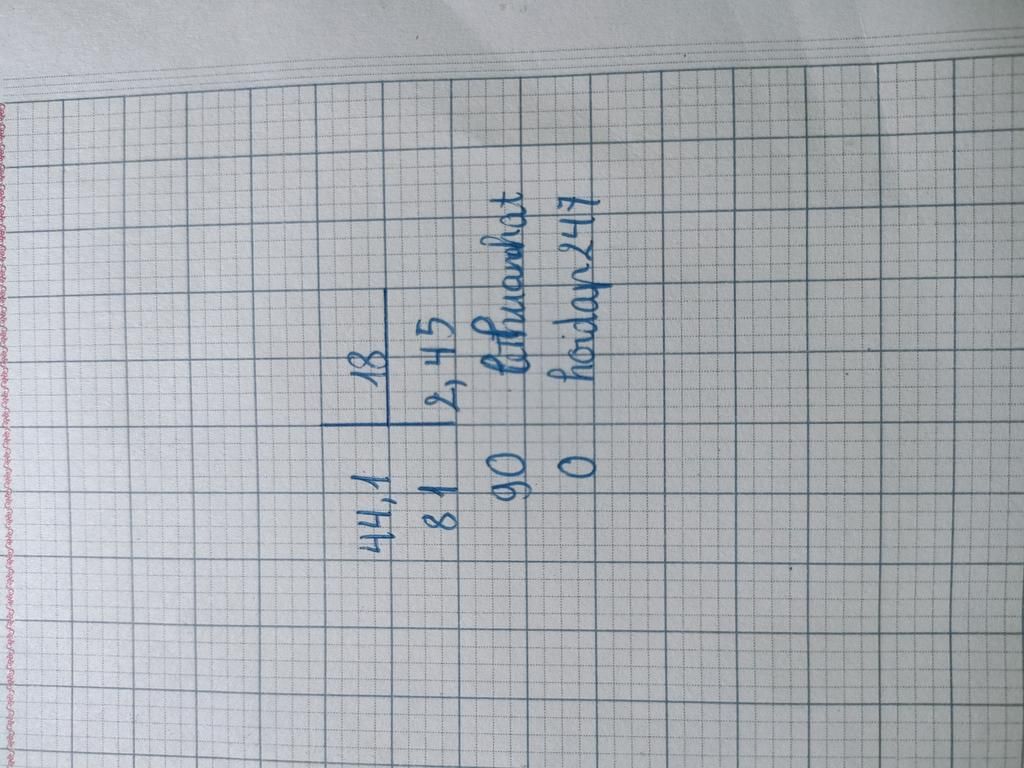 44,1 18
81 2,45
90 lethuanhat
0 hoidap247